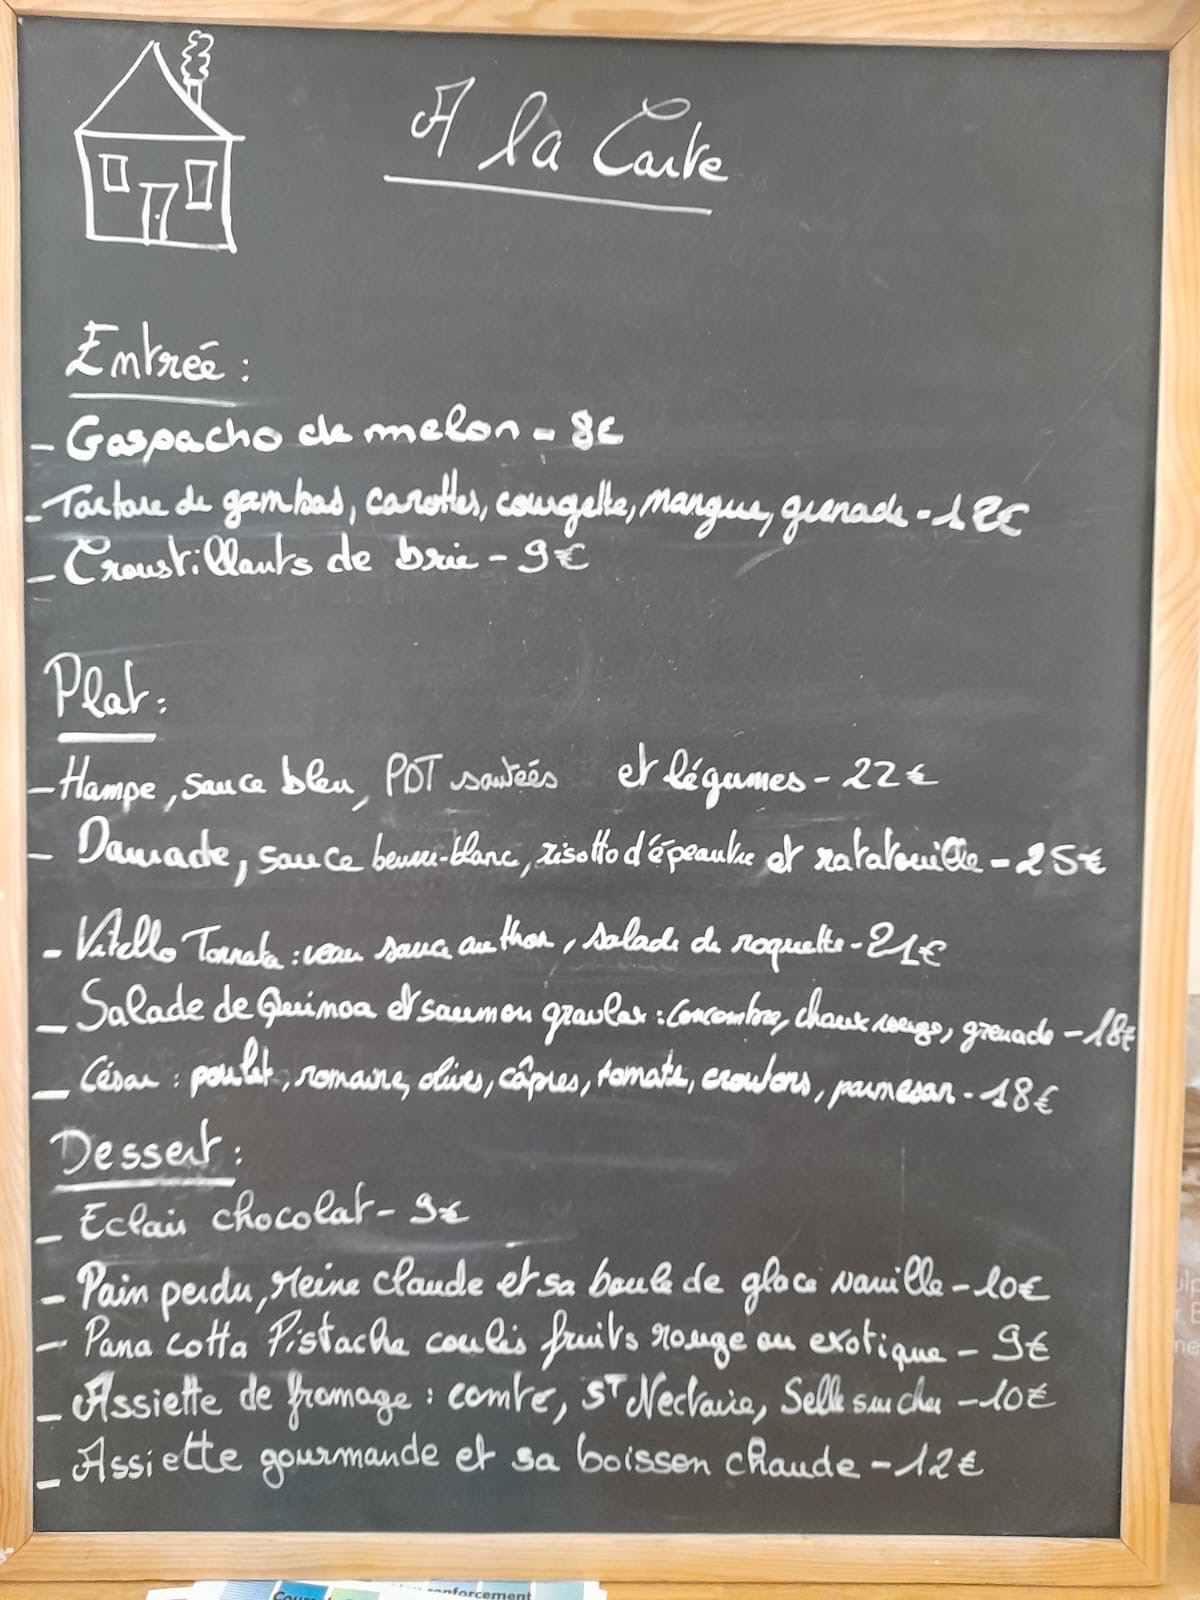 A la Carte
Entrée :
- Gaspacho de melon - 8€
- Tartare de gambas, carottes, courgette, mangue, grenade - 12€
- Croustillants de brie - 9€
Plat :
- Hampe, sauce bleu, PDT sautées et légumes - 22€
- Daurade, sauce beurre-blanc, risotto d'épeautre et ratatouille - 25€
- Vitello Tonnata : veau sauce au thon, salade de roquette - 21€
- Salade de Quinoa et saumon gravlax : concombre, choux rouge, grenade - 18€
- César : poulet, romaine, olives, câpres, tomate, croutons, parmesan - 18€
Dessert :
- Eclair chocolat - 9€
- Pain perdu, reine claude et sa boule de glace vanille - 10€
- Pana cotta Pistache coulis fruits rouge ou exotique - 9€
- Assiette de fromage : comte, ST Nectaire, Selle sur cher - 10€
- Assiette gourmande et sa boisson chaude - 12€